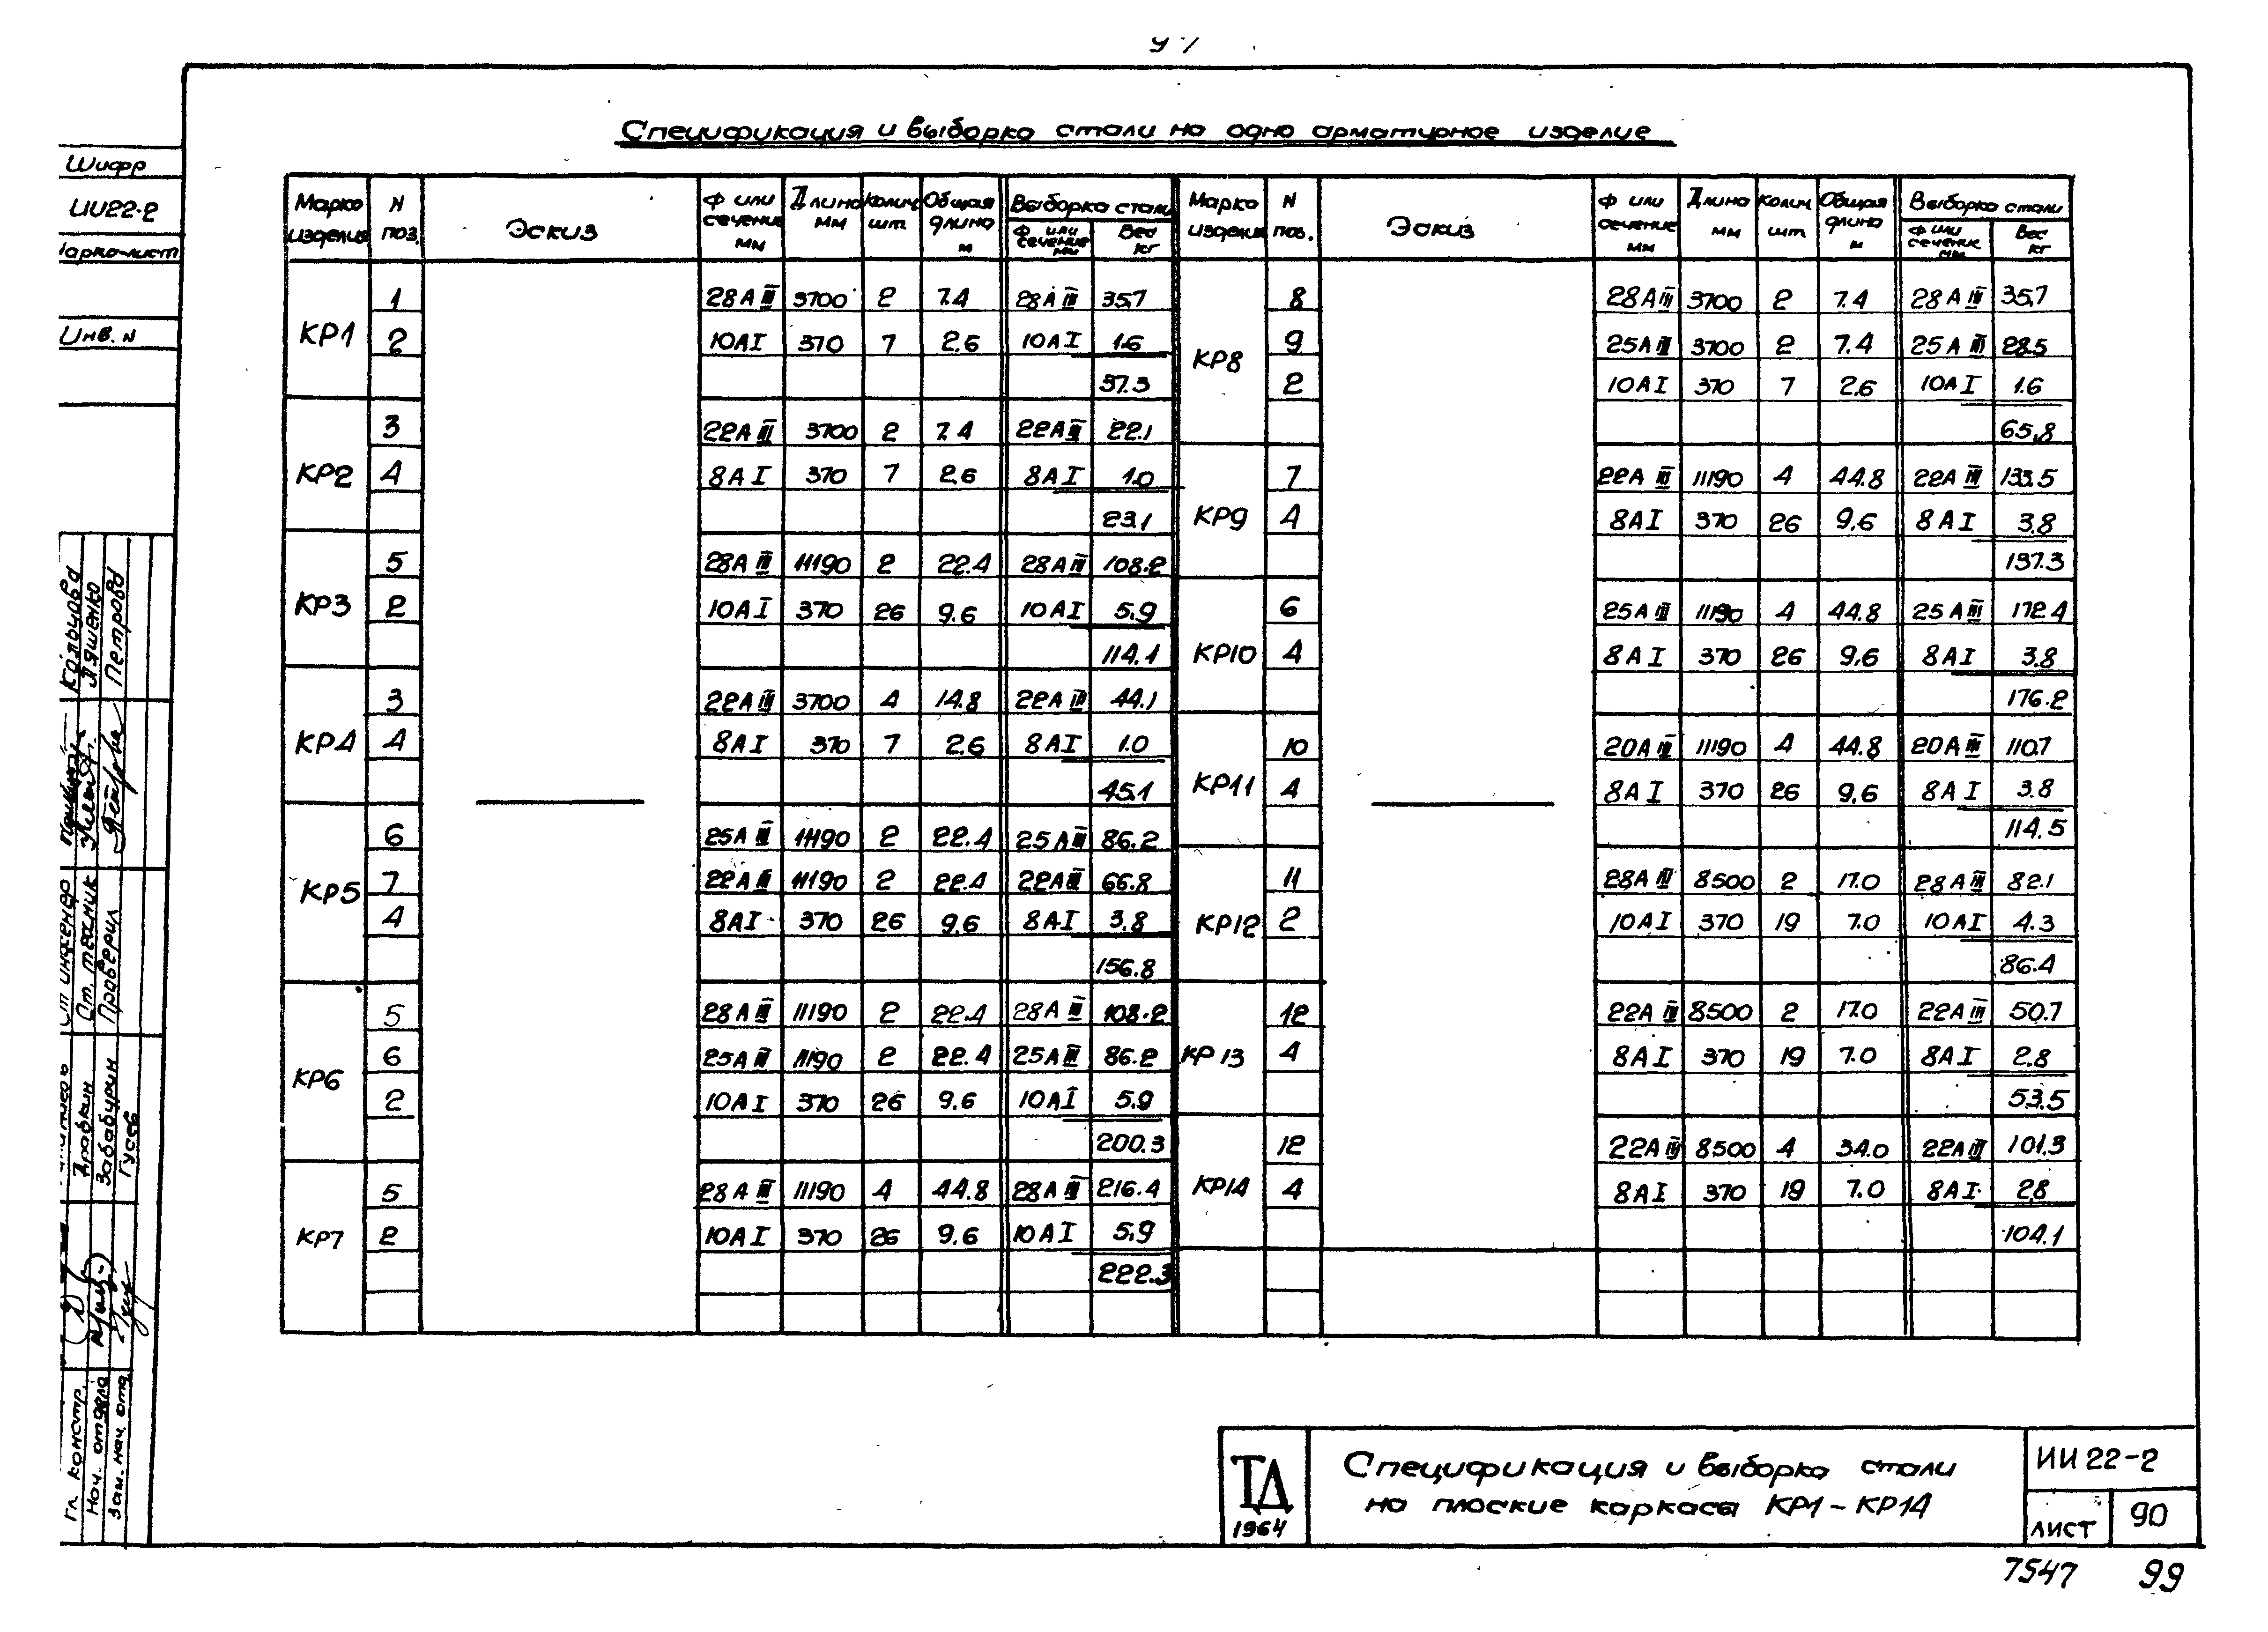 Спецификация и выборка стали на одно арматурное изделие
Шифр
ИИ22-2
Марка-лист
Инв. N
Марка изделия | N поз. | Эскиз | Ф или сечение мм | Длина мм | Колич. шт. | Общая длина м | Выборка стали | Ф или сечение мм | Вес кг
КР1
1 28АIII 3700 2 7.4 28АIII 35,7
2 10АI 370 7 2.6 10АI 1.6
37.3
КР2
3 22АIII 3700 2 7.4 22АIII 22.1
4 8АI 370 7 2.6 8АI 1.0
23.1
КР3
5 28АIII 11190 2 22.4 28АIII 108.2
2 10АI 370 26 9.6 10АI 5.9
114.1
КР4
3 22АIII 3700 4 14.8 22АIII 44.1
4 8АI 370 7 2.6 8АI 1.0
45.1
КР5
6 25АIII 11190 2 22.4 25АIII 86.2
7 22АIII 11190 2 22.4 22АIII 66.8
4 8АI 370 26 9.6 8АI 3.8
156.8
КР6
5 28АIII 11190 2 22.4 28АIII 108.2
6 25АIII 11190 2 22.4 25АIII 86.2
2 10АI 370 26 9.6 10АI 5.9
200.3
КР7
5 28АIII 11190 4 44.8 28АIII 216.4
2 10АI 370 26 9.6 10АI 5.9
222.3
Марка изделия | N поз. | Эскиз | Ф или сечение мм | Длина мм | Колич. шт | Общая длина м | Выборка стали | Ф или сечение мм | Вес кг
КР8
8 28АIII 3700 2 7.4 28АIII 35,7
9 25АIII 3700 2 7.4 25АIII 28.5
2 10АI 370 7 2.6 10АI 1.6
65,8
КР9
7 22АIII 11190 4 44.8 22АIII 133.5
4 8АI 370 26 9.6 8АI 3.8
137.3
КР10
6 25АIII 11190 4 44.8 25АIII 172.4
4 8АI 370 26 9.6 8АI 3.8
176.2
КР11
10 20АIII 11190 4 44.8 20АIII 110.7
4 8АI 370 26 9.6 8АI 3.8
114.5
КР12
11 28АIII 8500 2 17.0 28АIII 82.1
2 10АI 370 19 7.0 10АI 4.3
86.4
КР13
12 22АIII 8500 2 17.0 22АIII 50.7
4 8АI 370 19 7.0 8АI 2.8
53.5
КР14
12 22АIII 8500 4 34.0 22АIII 101.3
4 8АI 370 19 7.0 8АI 2.8
104.1
Кольцова
Ляшенко
Петрова
Ст инженер
Ст. техник
Проверил
Драбкин
Забабурин
Гусев
Гл. констр.
Нач. отдела
Зам. нач. отд.
ТД
1964
Спецификация и выборка стали
на плоские каркасы КР1-КР14
ИИ 22-2
лист 90
7547 99